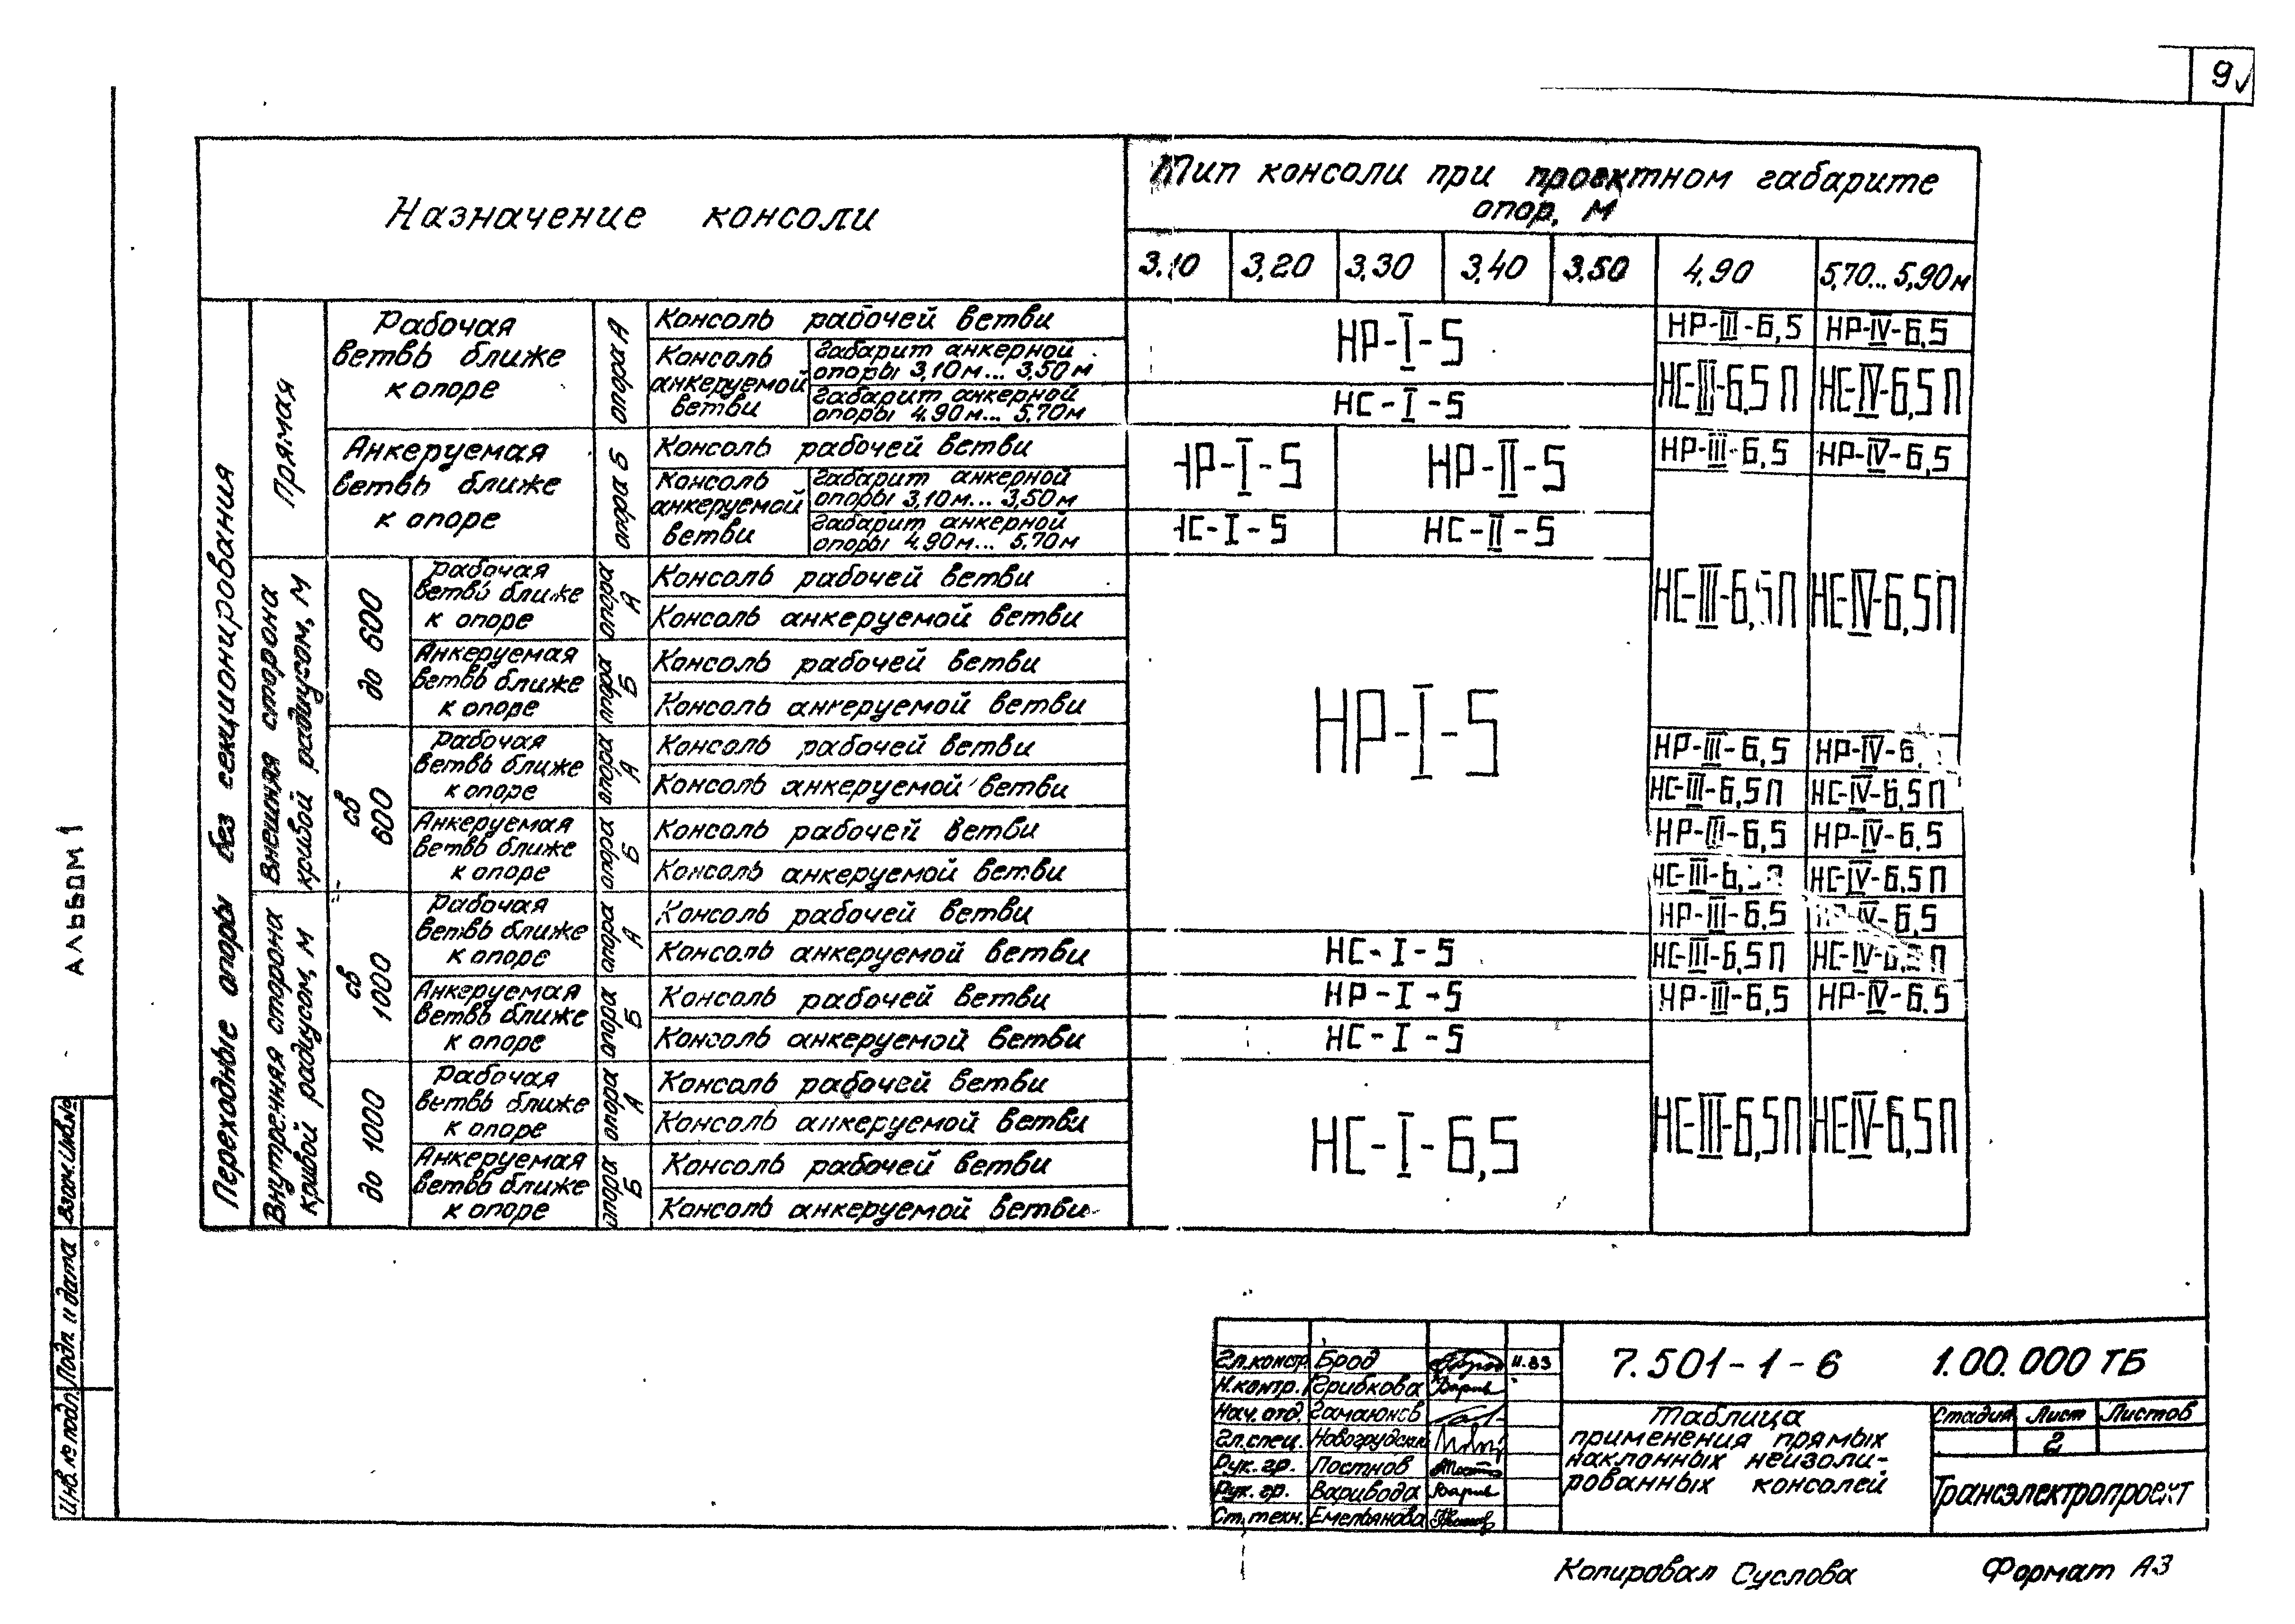 9
Назначение консоли
Тип консоли при проектном габарите
опор, м
3,10 3,20 3,30 3,40 3,50 4,90 5,70... 5,90м
Переходные опоры без секционирования
Прямая
Рабочая
ветвь ближе
к опоре
опора А
Консоль рабочей ветви
Консоль
анкеруемой
ветви
Габарит анкерной
опоры 3,10м... 3,50м
Габарит анкерной
опоры 4,90м... 5,70м
НР-I-5
НС-I-5
НР-III-6,5 НР-IV-6,5
НС-III-6,5П НС-IV-6,5П
Анкеруемая
ветвь ближе
к опоре
опора Б
Консоль рабочей ветви
Консоль
анкеруемой
ветви
Габарит анкерной
опоры 3,10м... 3,50м
Габарит анкерной
опоры 4,90м... 5,70м
НР-I-5 НР-II-5
НС-I-5 НС-II-5
НР-III-6,5 НР-IV-6,5
НС-III-6,5П НС-IV-6,5П
Внешняя сторона
кривой радиусом, м
до 600
Рабочая
ветвь ближе
к опоре
опора
А
Консоль рабочей ветви
Консоль анкеруемой ветви
Анкеруемая
ветвь ближе
к опоре
опора
Б
Консоль рабочей ветви
Консоль анкеруемой ветви
НР-I-5
св
600
Рабочая
ветвь ближе
к опоре
опора
А
Консоль рабочей ветви
НР-III-6,5 НР-IV-6,
Консоль анкеруемой ветви
НС-III-6,5П НС-IV-6,5П
Анкеруемая
ветвь ближе
к опоре
опора
Б
Консоль рабочей ветви
НР-III-6,5 НР-IV-6,5
Консоль анкеруемой ветви
НС-IV-6,5П
Внутренняя сторона
кривой радиусом, м
св
1000
Рабочая
ветвь ближе
к опоре
опора
А
Консоль рабочей ветви
НР-III-6,5
Консоль анкеруемой ветви
НС-I-5
НС-III-6,5П
Анкеруемая
ветвь ближе
к опоре
опора
Б
Консоль рабочей ветви
НР-I-5
НР-III-6,5 НР-IV-6,5
Консоль анкеруемой ветви
НС-I-5
до 1000
Рабочая
ветвь ближе
к опоре
опора
А
Консоль рабочей ветви
Консоль анкеруемой ветви
Анкеруемая
ветвь ближе
к опоре
опора
Б
Консоль рабочей ветви
Консоль анкеруемой ветви
НС-I-6,5
НС-III-6,5П НС-IV-6,5П
АЛЬБОМ 1
Инв.№подл. Подп. и дата Взам.инв.№
Гл.констр. Брод 11.83
Н.контр. Грибкова
Нач. отд. Гамаюнов
Гл.спец. Новогрудский
Рук. гр. Постнов
Рук. гр. Варивода
Ст.техн. Емельянова
7.501-1-6 1.00.000 ТБ
Таблица
применения прямых
наклонных неизоли-
рованных консолей
Стадия Лист Листов
2
Трансэлектропроект
Копировал Суслова Формат А3